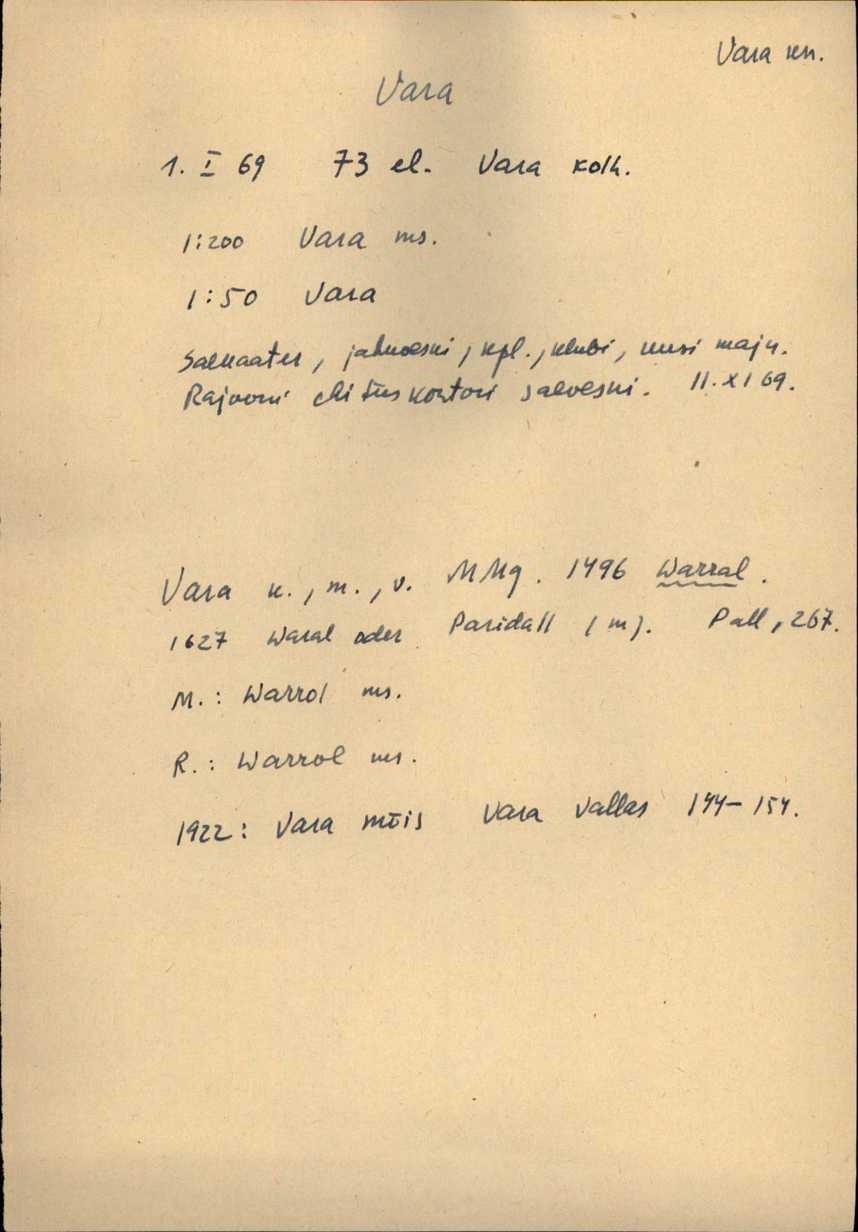 Vara kn.
Vara
1. I 69 73 el. Vara kolh.
1:200 Vara ms.
1:50 Vara
Saekaater, jahuveski, kpl., klubi, uusi maju.
Rajooni ehituskontori saeveski. 11. XI 69.
Vara k., m., v. MMg. 1496 Warral.
1627 Waral oder Paridall (m). Pall, 267.
M.: Warrol ms.
R.: Warrol ms.
1922: Vara mõis Vara vallas 144-154.